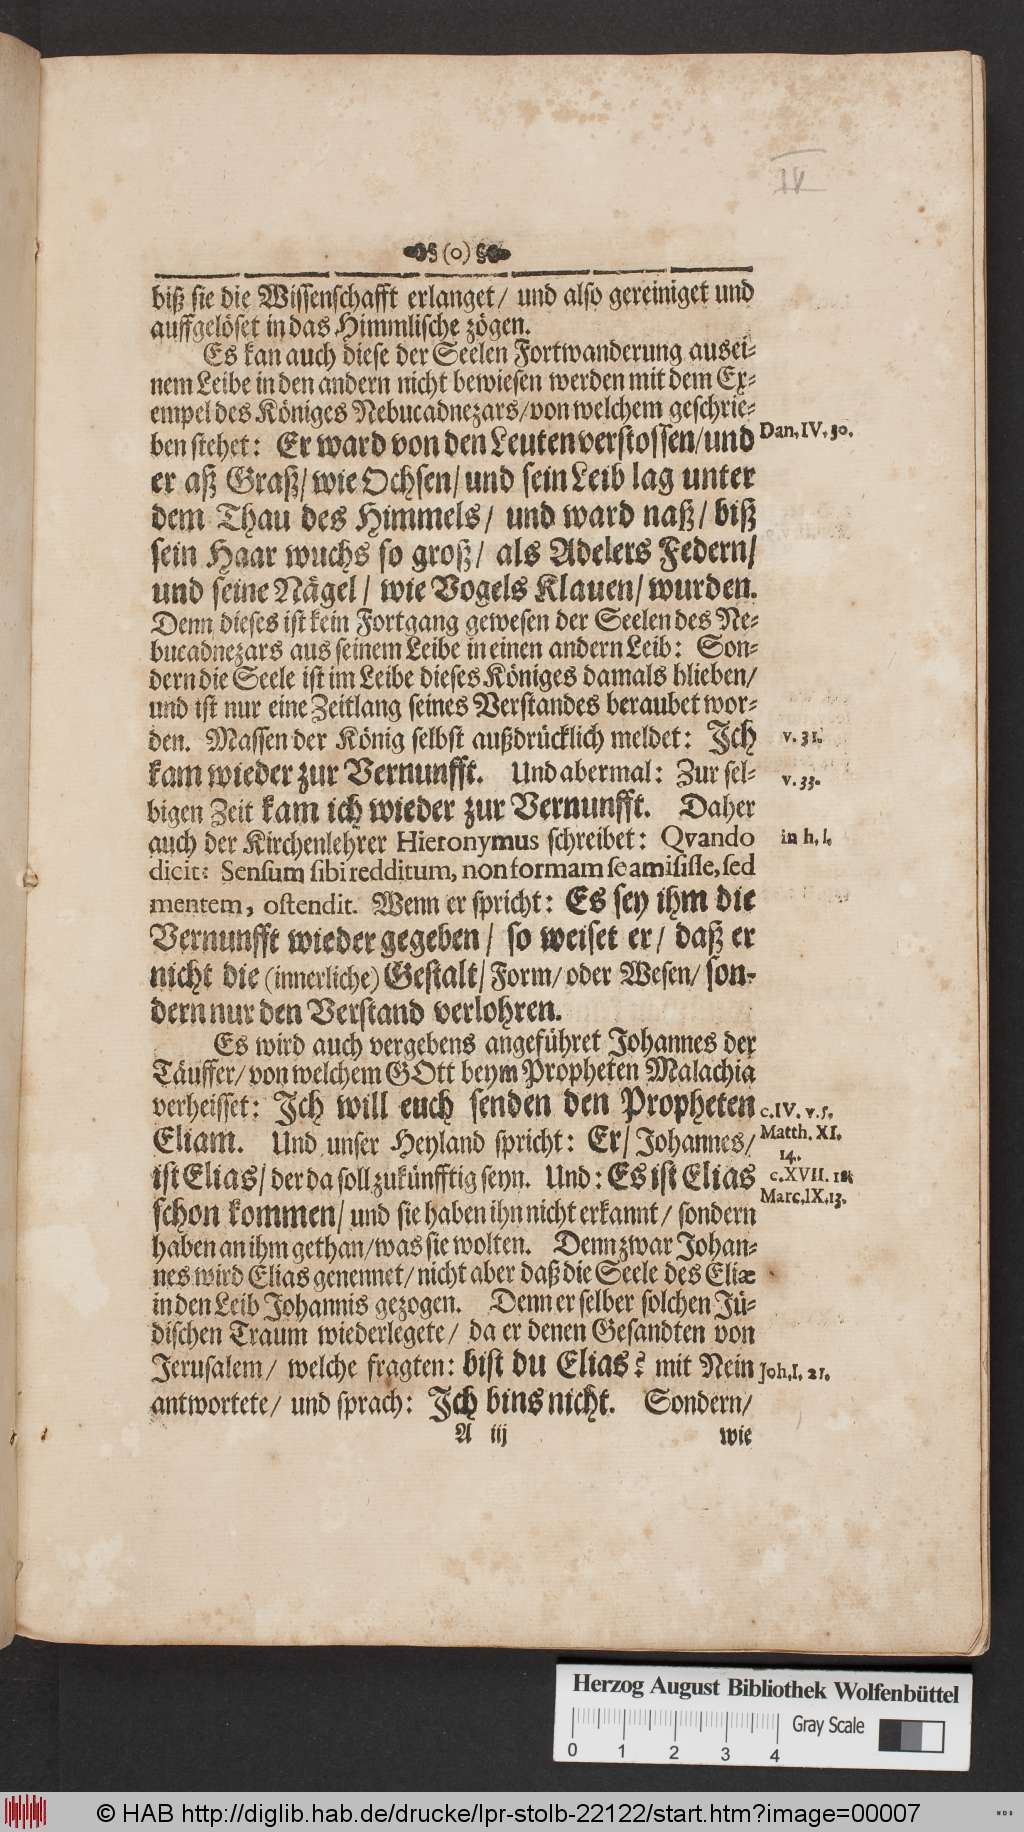 IV
(o)
biß sie die Wissenschafft erlanget/ und also gereiniget und
auffgelöset in das Himmlische zögen.
Es kan auch diese der Seelen Fortwanderung ausei-
nem Leibe in den andern nicht bewiesen werden mit dem Ex-
empel des Königes Nebucadnezars/ von welchem geschrie-
ben stehet: Er ward von den Leuten verstossen/ und Dan. IV. 30.
er aß Graß/ wie Ochsen/ und sein Leib lag unter
dem Thau des Himmels/ und ward naß/ biß
sein Haar wuchs so groß/ als Adelers Federn/
und seine Nägel/ wie Vogels Klauen/ wurden.
Denn dieses ist kein Fortgang gewesen der Seelen des Ne-
bucadnezars aus seinem Leibe in einen andern Leib: Son-
dern die Seele ist im Leibe dieses Königes damals blieben/
und ist nur eine Zeitlang seines Verstandes beraubet wor-
den. Massen der König selbst außdrücklich meldet: Jch v. 31.
kam wieder zur Vernunfft. Und abermal: Zur sel- v. 33.
bigen Zeit kam ich wieder zur Vernunfft. Daher
auch der Kirchenlehrer Hieronymus schreibet: Qvando in h. l.
dicit: Sensum sibi redditum, non formam se amisisse, sed
mentem, ostendit. Wenn er spricht: Es sey ihm die
Vernunfft wieder gegeben/ so weiset er/ daß er
nicht die (innerliche) Gestalt/ Form/ oder Wesen/ son-
dern nur den Verstand verlohren.
Es wird auch vergebens angeführet Johannes der
Täuffer/ von welchem GOtt beym Propheten Malachia
verheisset: Jch will euch senden den Propheten c. IV. v. 5.
Eliam. Und unser Heyland spricht: Er/ Johannes/ Matth. XI.
14.
ist Elias/ der da soll zukünfftig seyn. Und: Es ist Elias c. XVII. 12.
schon kommen/ und sie haben ihn nicht erkannt/ sondern Marc. IX. 13.
haben an ihm gethan/ was sie wolten. Denn zwar Johan-
nes wird Elias genennet/ nicht aber daß die Seele des Eliæ
in den Leib Johannis gezogen. Denn er selber solchen Jü-
dischen Traum wiederlegete/ da er denen Gesandten von
Jerusalem/ welche fragten: bist du Elias? mit Nein Joh. I. 21.
antwortete/ und sprach: Jch bins nicht. Sondern/
A iij wie
Herzog August Bibliothek Wolfenbüttel
0 1 2 3 4 Gray Scale
© HAB http://diglib.hab.de/drucke/lpr-stolb-22122/start.htm?image=00007